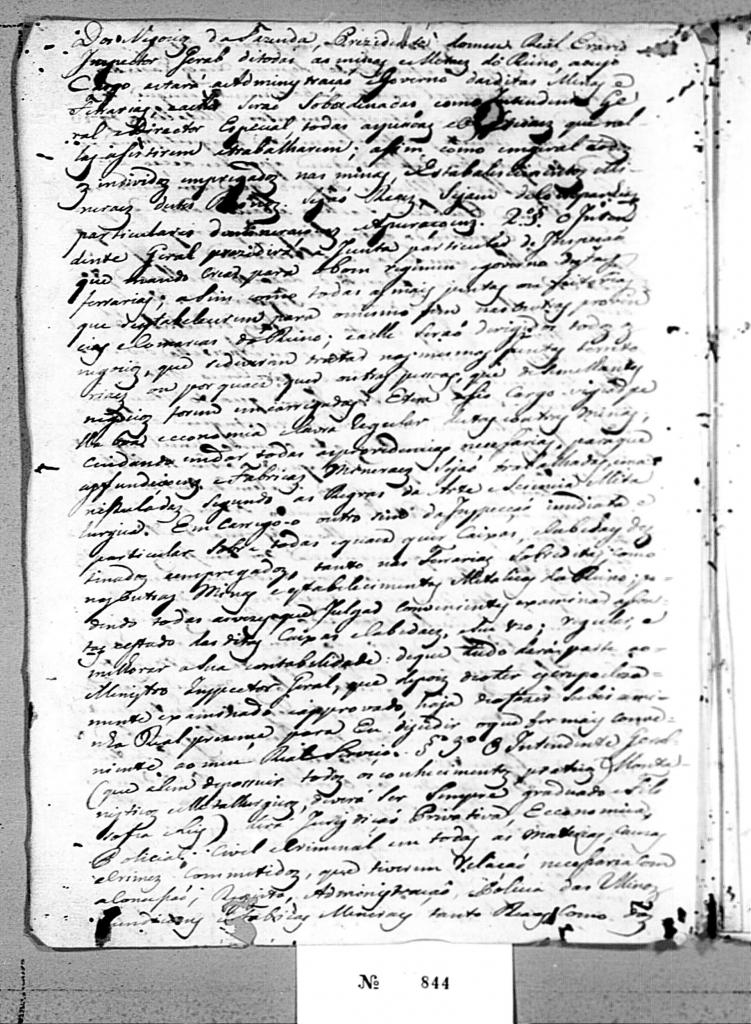 Dos Negocios da Fazenda, Prezidente do meu Real Erario
Inspector Geral de todas as minas e Metaes do Reino, a cujo
Cargo estará a Administração e Governo das ditas Minas e
Ferrarias, e a elle serão Sobordinadas como Intendente Ge
ral e Director Especial, todas que nal
las assistirem e trabalharem; assim como em geral a todos
os individos empregados nas minas, e Estabalescimentos Mi-
neraes destes Reinos. Sejão Reaes, Sejam de Companhias
particulares 2.º §. O Inten
dente Geral prezidirá a Junta particular de Inspessão
que mando crear para o bom regimen e governo destas
ferrarias; assim como todas as mais juntas ou feitorias
que se estabelecerem para o mesmo fim nas outras provin
cias e Comarcas do Reino; e a elle serão dirigidos todos os
negocios, que se tratar nas mesmas juntas
ou por quaes quer outras pessoas, que de semelhantes
negocios forem encarregadas. E tera a seo Cargo vigiar pe
la boa economia e lavra regular destas e outras Minas,
Cuidando em dar todas as providencias necesarias, para que
as fundicoens e Fabricas Mineraes sejão trabalhadas, e ma
nipuladas segundo as Regras da Arte e Sciencia Meta
lurgica. Em carrego-o outro sim da Inspeção imediata e
particular sobre todas e quaes quer Caixas, e Cabedaes des
tinados e empregados, tanto nas Ferrarias Sobreditas, como
nas outras Minas e estabelecimentos Metalicos do Reino; po
dendo todas as vezes que Julgar conveniente examinar
o estado das ditas Caixas e Cabedaes, e seu uzo; regular, e
milhorar a sua contabilidade: de que tudo dará parte ao
Ministro Inspector Geral, que depois de o ter escrupuloza-
mente examinado e approvado, haja de o fazer subir a mi-
nha Real prezença para Eu decidir o que for mais conve-
niente ao meu Real Serviço. § 3º O Intendente Geral
(que alem de possuir todos os conhecimentos praticos Monta
nisticos e Metallurgicos, deverá ser Sempre graduado em Filo
sofia e Leis) terá Jurisdição Privativa, Economica,
Policial, Civil e Criminal em todas as materias, Cauzas
e crimes Commetidos, que tiverem Relacão necessaria com
a Concessão; Administração, e Policia das Minas
Fundicoens e Fabricas Mineraes tanto Reaes Como das
Nº 844